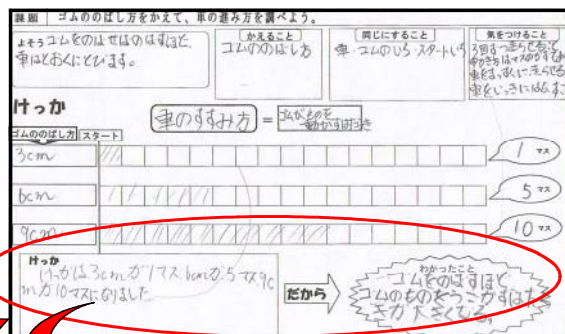 課題 ゴムののばし方をかえて、車の進み方を調べよう。
よそう ゴムをのばせばのばすほど、
車はとおくにとびます。
かえること
ゴムののばし方
同じにすること
車・ゴムの・スタートいち
気をつけること
3回ずつ走らせる
けっか
車のすすみ方 = ゴムがものを
動かすはたらき
ゴムののばし方 スタート
3cm 1マス
6cm 5マス
9cm 10マス
けっか
けっかは3cmが1マス6cmが5マス9c
mが10マスになりました
だから
わかったこと
ゴムをのばすほど
ゴムのものをうごかすはたら
きが大きくなる。